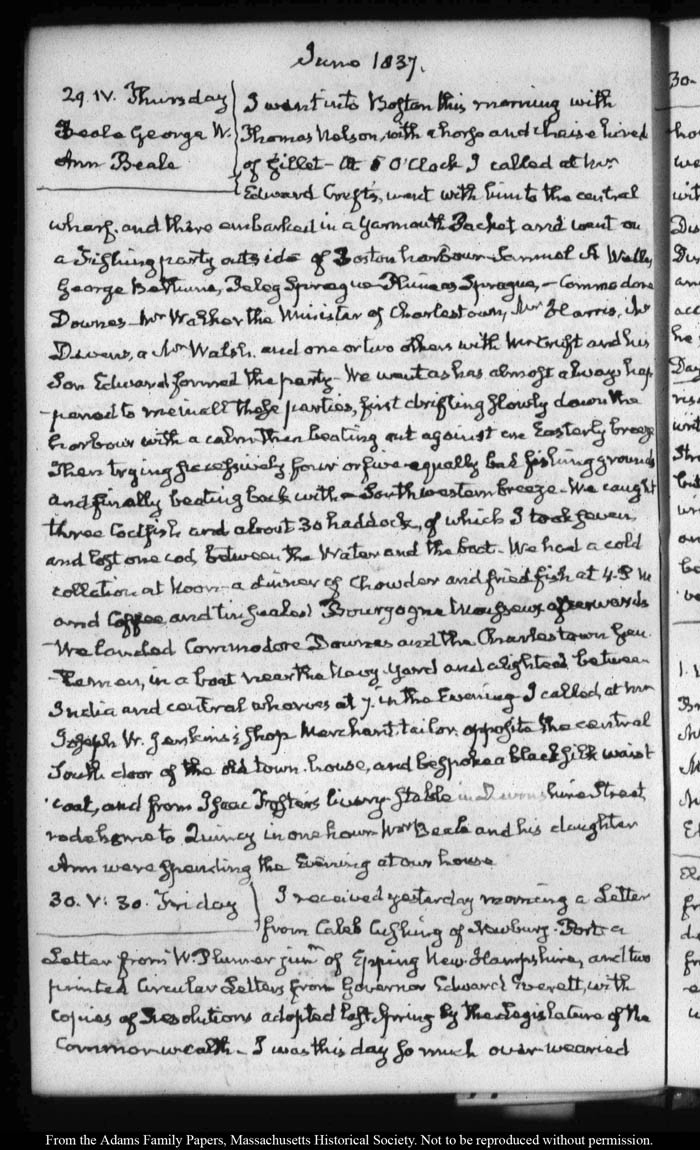 June 1837.
29. IV. Thursday
Beale George W.
Ann Beale
I went into Boston this morning with
Thomas Nelson, with a horse and chaise hired
of Gillet – At 5 O'Clock I called at Mr
Edward Cruft's, went with him to the central
wharf. and there embarked in a Yarmouth Packet and went on
a Fishing party outside of Boston harbour Samuel A Wells,
George Bethune, Peleg Sprague Phineas Sprague, – Commodore
Downes – Mr Walker the Minister of Charlestown, Mr Harris, Mr
Devens, a Mr Walsh. and one or two others with Mr Cruft and his
Son Edward formed the party – We went as has almost always hap
-pened to me in all these parties, first drifting slowly down the
harbour with a calm then beating out against an Easterly breeze
Then trying successively four or five equally bad fishing grounds
and finally beating back with a Southwestern breeze – We caught
three Codfish and about 30 haddock, of which I took seven,
and lost one cod, between the Water and the boat – We had a cold
collation at Noon a dinner of Chowder and fried fish at 4. P M
and Coffee and Bourgogne Mousseux afterwards
We landed Commodore Downes and the Charlestown Gen
-tlemen, in a boat near the Navy-Yard and alighted between
India and central wharves at 7. in the Evening I called, at Mr
Joseph W. Jenkins's shop Merchant tailor, opposite the central
South door of the old town-house, and bespoke a black silk waist
coat, and from Isaac livery-stable in Devonshire Street
rode home to Quincy in one hour – Mr Beale and his daughter
Ann were spending the Evening at our house
30. V: 30. Friday
I received yesterday morning a Letter
from Caleb Cushing of Newbury-Port a
Letter from W. Plumer junr of Epping New-Hampshire, and two
printed Circular Letters from Governor Edward Everett, with
copies of Resolutions adopted last Spring by the Legislature of the
Commonwealth – I was this day so much over-wearied
30-
From the Adams Family Papers, Massachusetts Historical Society. Not to be reproduced without permission.